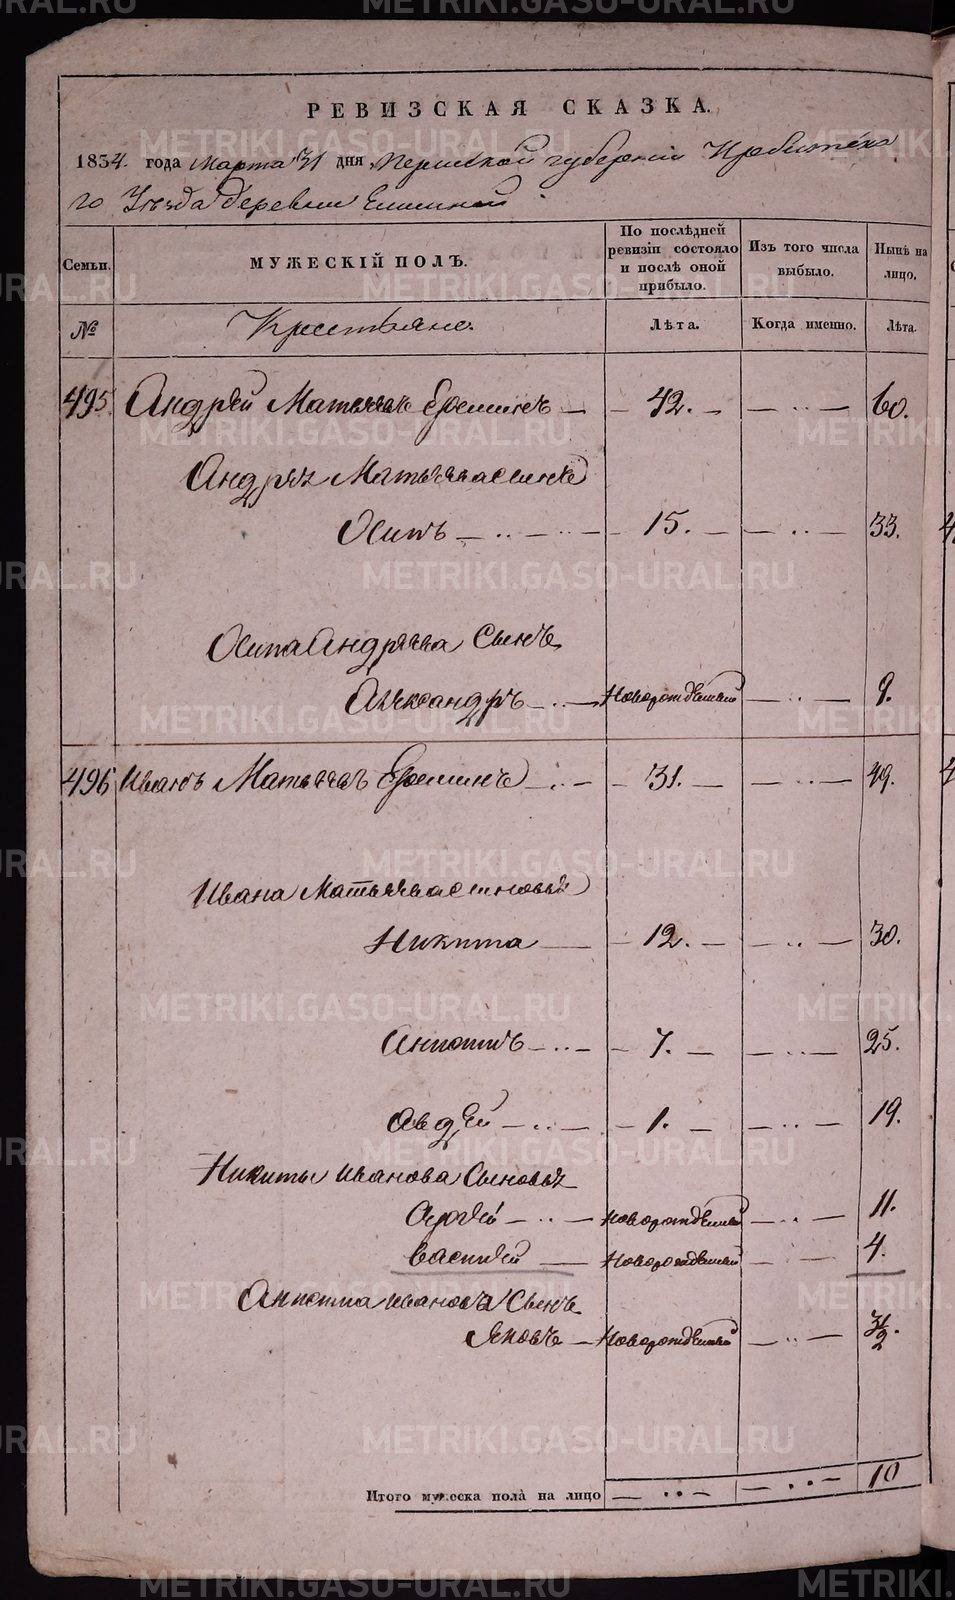 РЕВИЗСКАЯ СКАЗКА.
1834. года Марта 31 дня Пермской губернии Ирбитска
го Уѣзда деревни
Семьи.
МУЖЕСКІЙ ПОЛЪ.
По послѣдней ревизіи состояло и послѣ оной прибыло.
Изъ того числа выбыло.
Нынѣ на лицо.
№
Крестьяне.
Лѣта.
Когда именно.
Лѣта.
495. Андрѣй Матвѣевъ Еремин — 42. — — .. — 60.
Андрѣя Матвѣева сынъ
Осипъ — .. — .. — 15. — — .. — 33.
Осипа Андрѣева Сынъ
Александръ — .. — Новорожденный — .. — 9.
496 Иванъ Матвѣевъ Ереминъ — .. — 31. — — .. — 49.
Ивана Матвѣева сыновья
Никита — 12. — — .. — 30.
— .. — 7. — — .. — 25.
Авдѣй — .. — 1. — — .. — 19.
Никиты Иванова Сыновья
Сергѣй — .. — новорожденный — .. — 11.
Василѣй — новорожденный — .. — 4.
Иванова Сынъ
Яковъ — Новорожденный — .. — 3/2.
Итого мужеска пола на лицо — .. — — .. — 10
METRIKI.GASO-URAL.RU